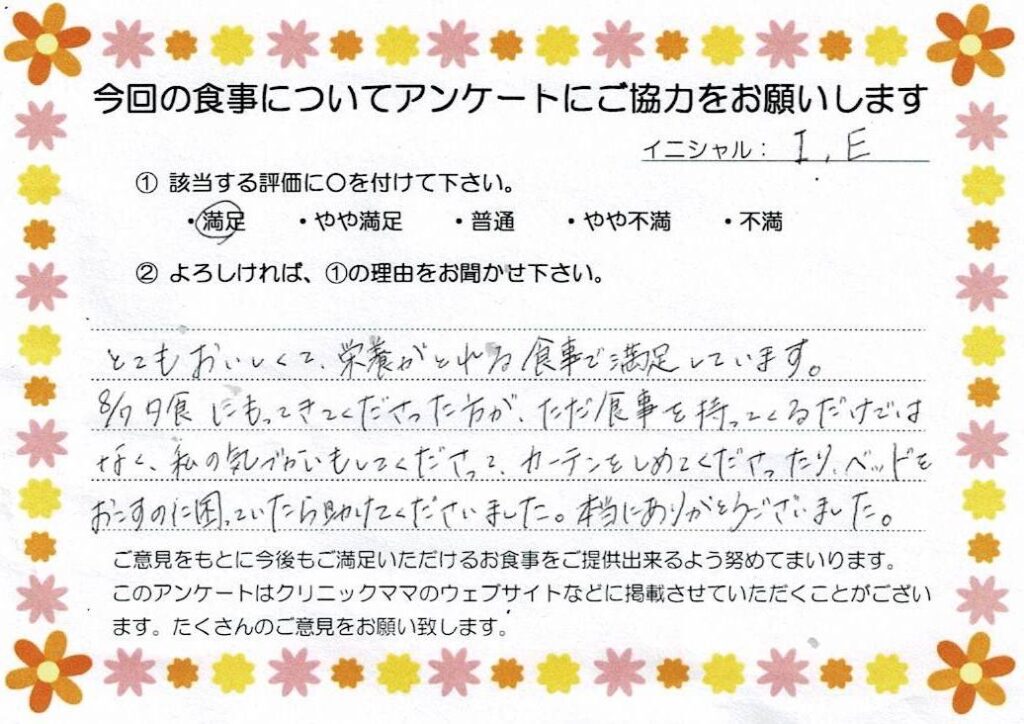 今回の食事についてアンケートにご協力をお願いします
イニシャル： I.E
① 該当する評価に〇を付けて下さい。
・満足 ・やや満足 ・普通 ・やや不満 ・不満
② よろしければ、①の理由をお聞かせ下さい。
とてもおいしくて、栄養がとれる食事で満足しています。
8/7夕食にもってきてくださった方が、ただ食事を持ってくるだけでは
なく、私の気づかいもしてくださって、カーテンをしめてくださったり、ベッドを
おこすのに困っていたら助けてくださいました。本当にありがとうございました。
ご意見をもとに今後もご満足いただけるお食事をご提供出来るよう努めてまいります。
このアンケートはクリニックママのウェブサイトなどに掲載させていただくことがござい
ます。たくさんのご意見をお願い致します。